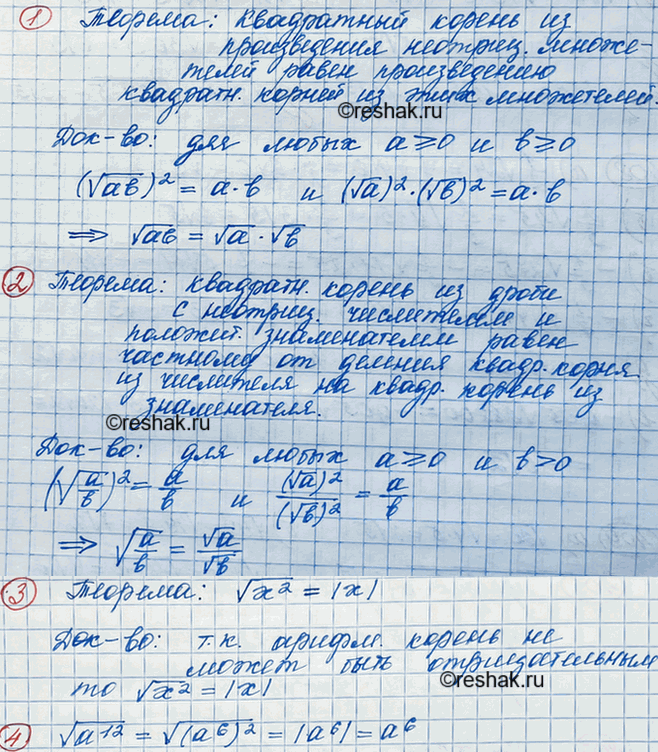 1 Теорема: квадратный корень из
произведения неотриц. множе-
телей равен произведению
квадратн. корней из этих множетелей.
©reshak.ru
Док-во: для любых a ≥ 0 и b ≥ 0
(√ab)² = a·b и (√a)²·(√b)² = a·b
⇒ √ab = √a·√b
2 Теорема: квадратн. корень из дроби
с неотриц. числителем и
положит. знаменателем равен
частному от деления квадр. корня
из числителя на квадр. корень из
знаменателя.
©reshak.ru
Док-во: для любых a ≥ 0 и b > 0
(√a/b)² = a/b и (√a)²/(√b)² = a/b
⇒ √a/b = √a/√b
3 Теорема: √x² = |x|
Док-во: т.к. арифм. корень не
может быть отрицательным
то √x² = |x|
©reshak.ru
4 √a¹² = √(a⁶)² = |a⁶| = a⁶